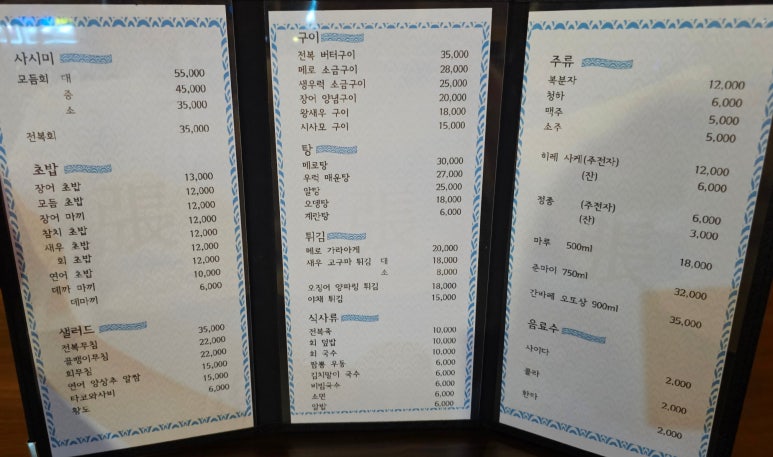 사시미
모듬회 대 55,000
중 45,000
소 35,000
전복회 35,000
초밥
장어 초밥 13,000
모듬 초밥 12,000
장어 마끼 12,000
참치 초밥 12,000
새우 초밥 12,000
회 초밥 12,000
연어 초밥 10,000
데까 마끼 6,000
데마끼
샐러드
전복무침 35,000
골뱅이무침 22,000
회무침 22,000
연어 양상추 쌈 15,000
타코와사비 15,000
황도 6,000
구이
전복 버터구이 35,000
메로 소금구이 28,000
생우럭 소금구이 25,000
장어 양념구이 20,000
왕새우 구이 18,000
시사모 구이 15,000
탕
메로탕 30,000
우럭 매운탕 27,000
알탕 25,000
오뎅탕 18,000
계란탕 6,000
튀김
메로 가라아게 20,000
새우 고구마 튀김 대 18,000
소 8,000
오징어 튀김 18,000
야채 튀김 15,000
식사류
전복죽 10,000
회 덮밥 10,000
회 국수 10,000
짬뽕 우동 6,000
김치말이 국수 6,000
비빔국수 6,000
소면 6,000
알밥 6,000
주류
복분자 12,000
청하 6,000
맥주 5,000
소주 5,000
히레 사케(주전자) 12,000
(잔) 6,000
정종 (주전자) 6,000
(잔) 3,000
마루 500ml 18,000
준마이 750ml 32,000
간바레 오또상 900ml 35,000
음료수
사이다 2,000
콜라 2,000
환타 2,000